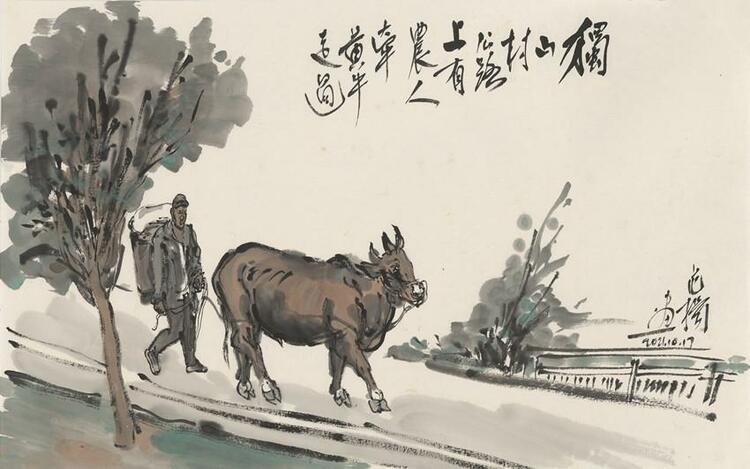 獨
山
村
公路
上有
農人
牽
黃牛
走過
畫
2021.10.17